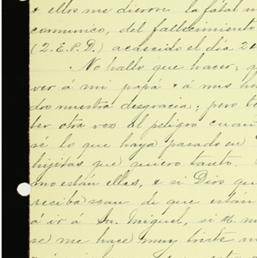 é ellos me dieron la fatal n
comunico, del fallecimiento
(Q.E.P.D.) acaecido el día 2
No hallé que hacer, 
ver á mi papá é á mis he
do nuestra desgracia; pero 
ber otra vez al peligro cuan
sé lo que haya pasado en
hijitas que quiero tanto.
mo están ellas, é si Dios qu
reciba razon de que están
á ir á Sn. Miguel, si 
se me hace muy triste